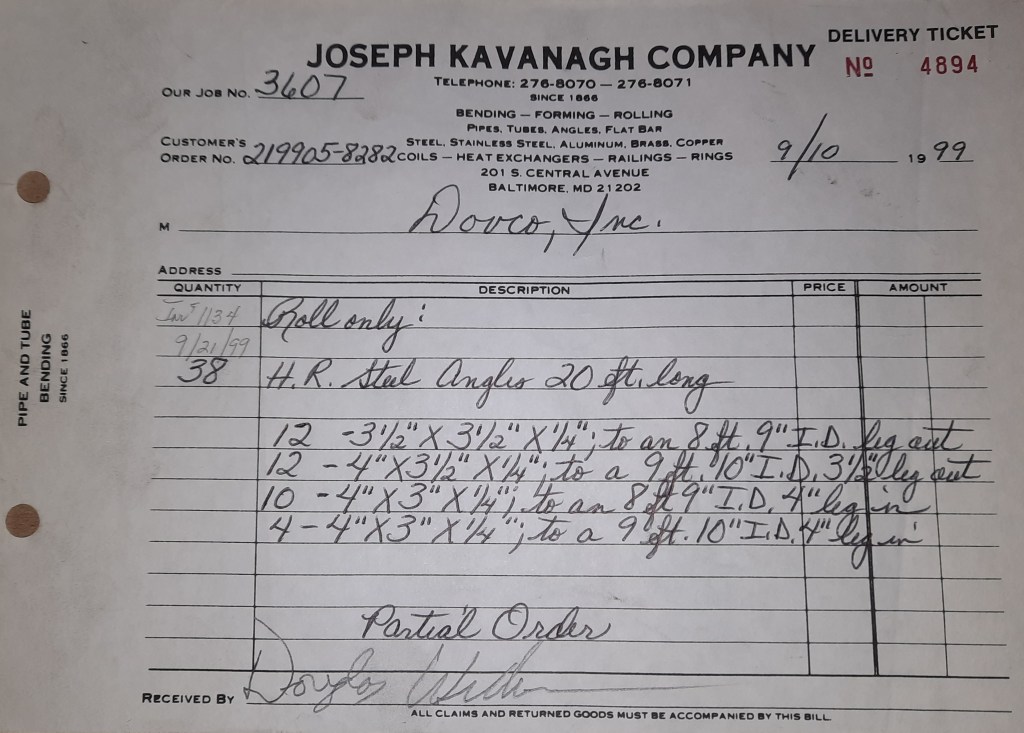 DELIVERY TICKET
JOSEPH KAVANAGH COMPANY
Nº 4894
OUR JOB NO. 3607
TELEPHONE: 276-8070 — 276-8071
SINCE 1866
BENDING — FORMING — ROLLING
PIPES, TUBES, ANGLES, FLAT BAR
CUSTOMER'S
ORDER NO. 219905-8282
STEEL, STAINLESS STEEL, ALUMINUM, BRASS, COPPER
COILS — HEAT EXCHANGERS — RAILINGS — RINGS
9/10 19 99
201 S. CENTRAL AVENUE
BALTIMORE, MD 21202
M Dovco, Inc.
ADDRESS
QUANTITY DESCRIPTION PRICE AMOUNT
1134 Roll only:
9/21/99
38 H.R. Steel Angles 20 ft. long
12 -3½" X 3½" X ¼"; to an 8 ft. 9" I.D. leg out
12 - 4" X 3½" X ¼"; to a 9 ft. 10" I.D. 3½" leg out
10 - 4" X 3" X ¼"; to an 8 ft 9" I.D. 4" leg in
4 - 4" X 3" X ¼"; to a 9 ft. 10" I.D. 4" leg in
Partial Order
RECEIVED BY Douglas
ALL CLAIMS AND RETURNED GOODS MUST BE ACCOMPANIED BY THIS BILL
PIPE AND TUBE
BENDING
SINCE 1866